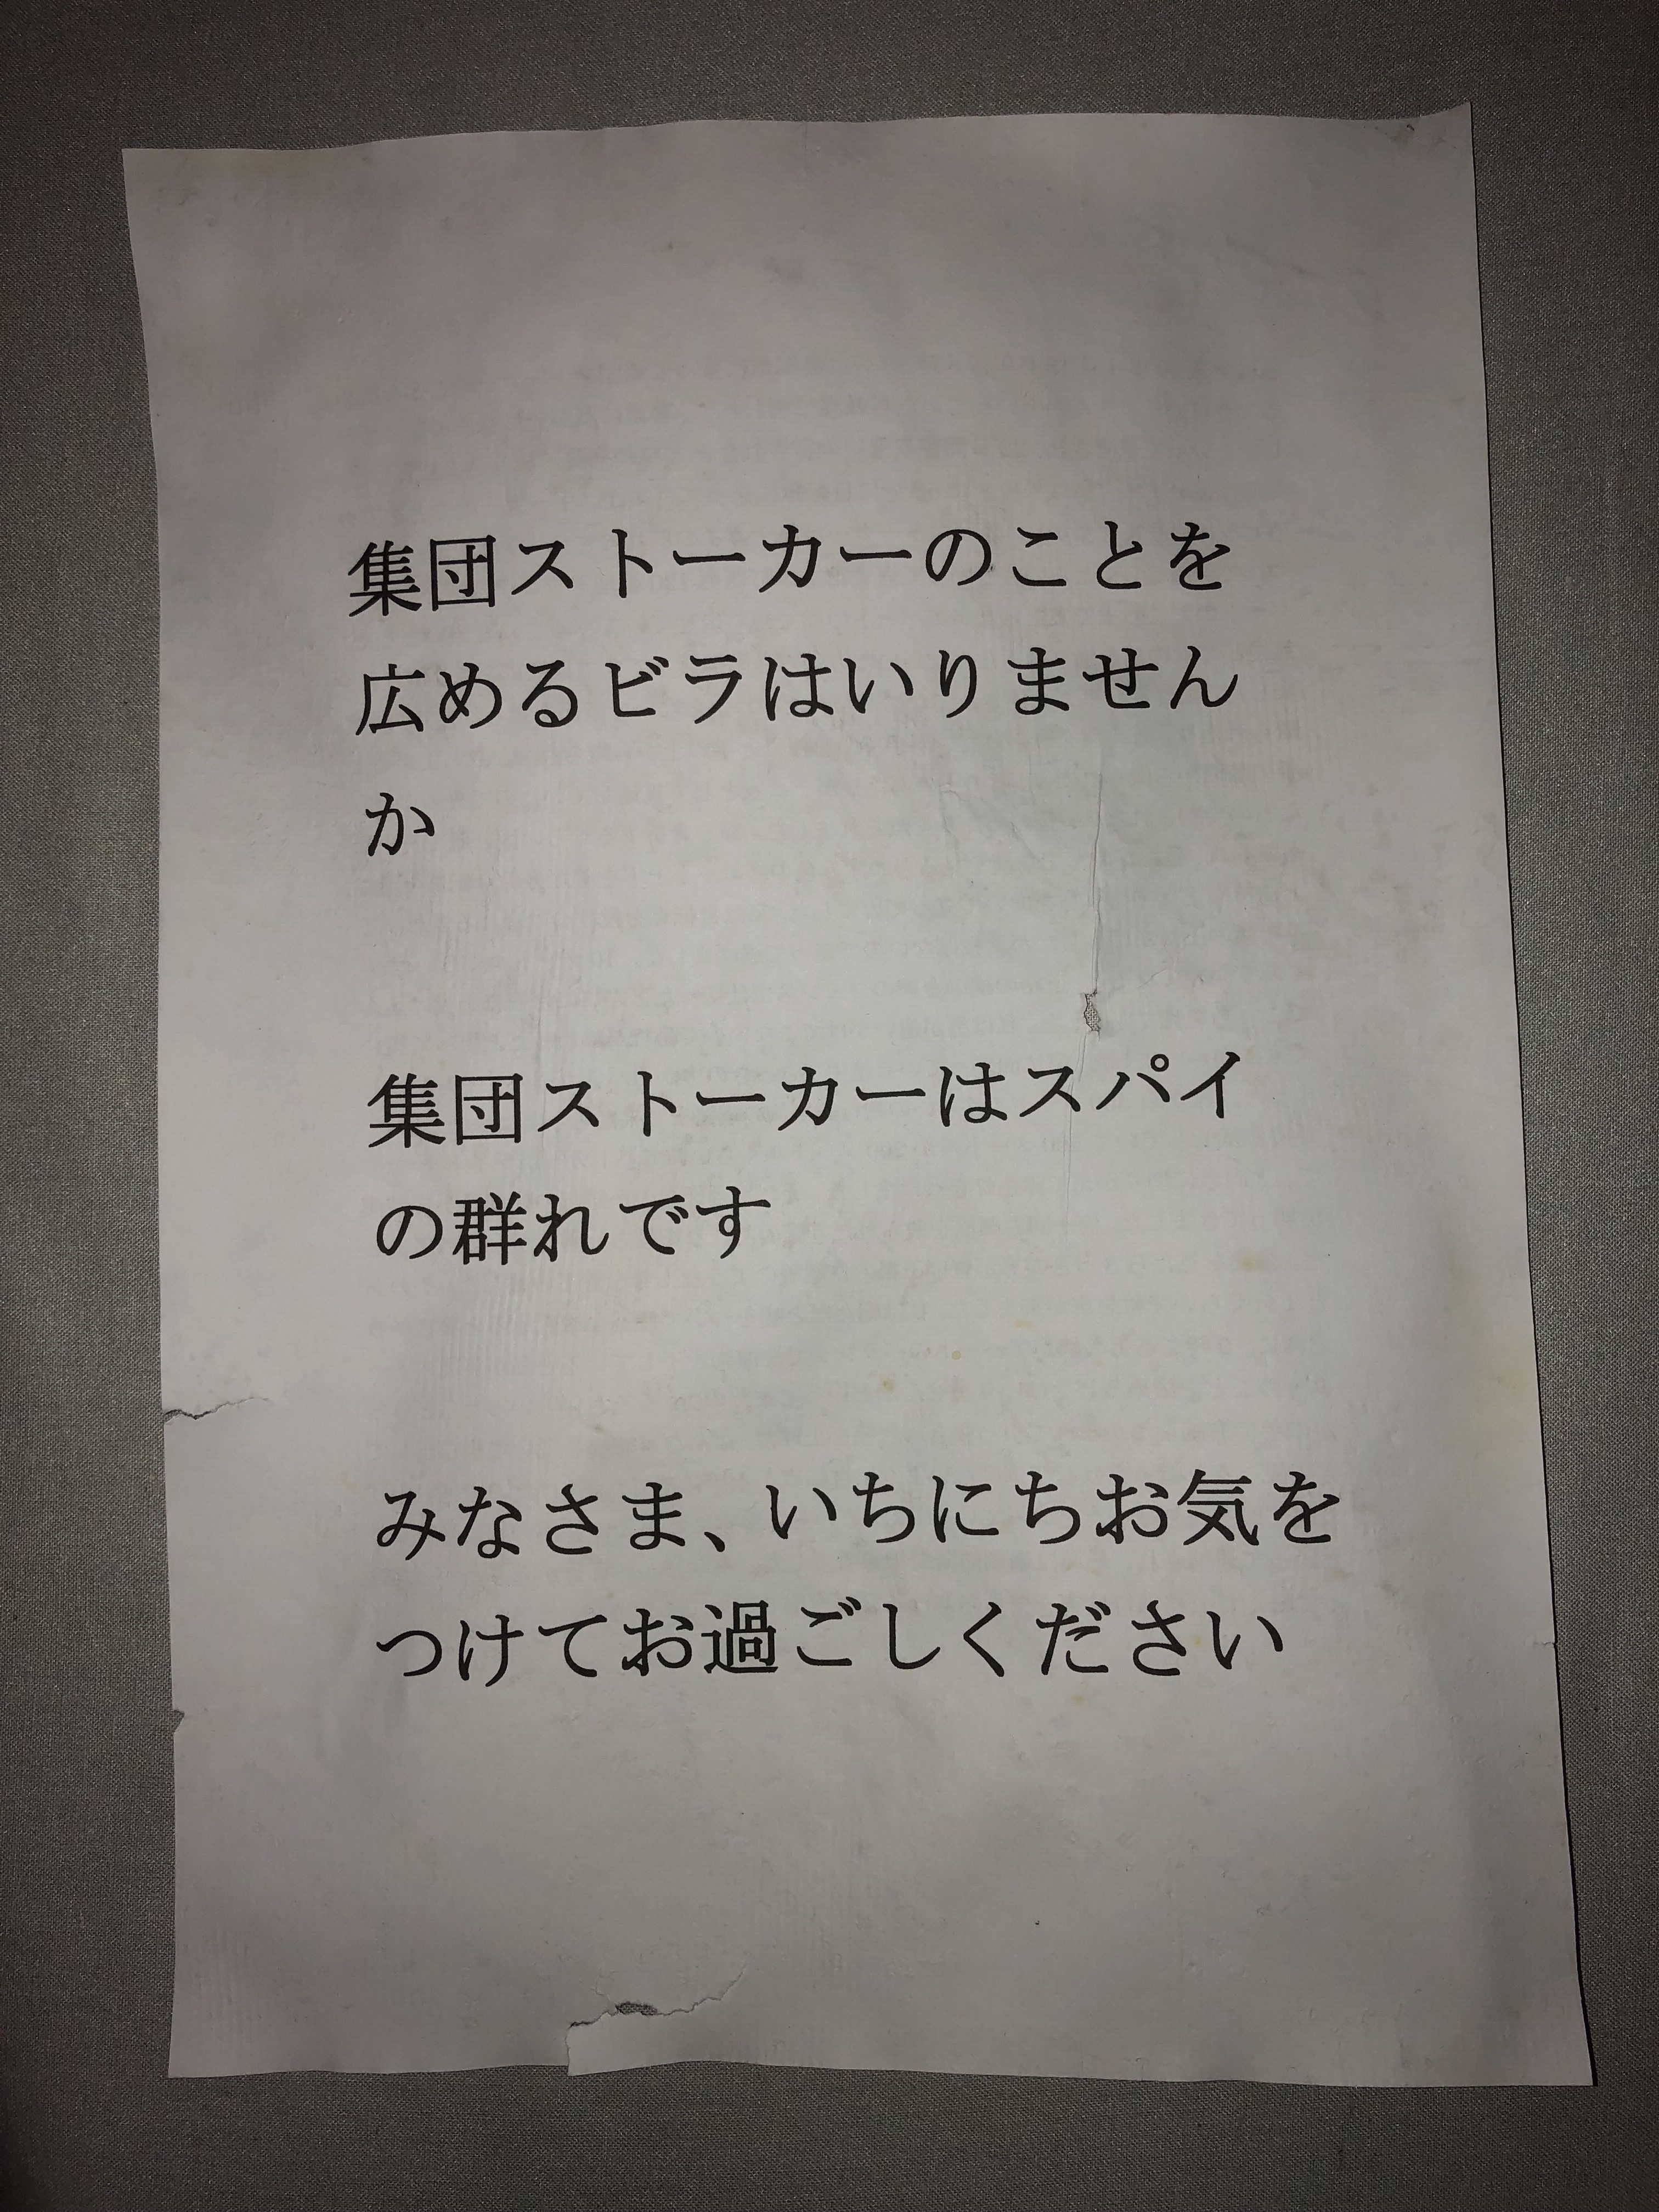 集団ストーカーのことを
広めるビラはいりません
か
集団ストーカーはスパイ
の群れです
みなさま、いちにちお気を
つけてお過ごしください